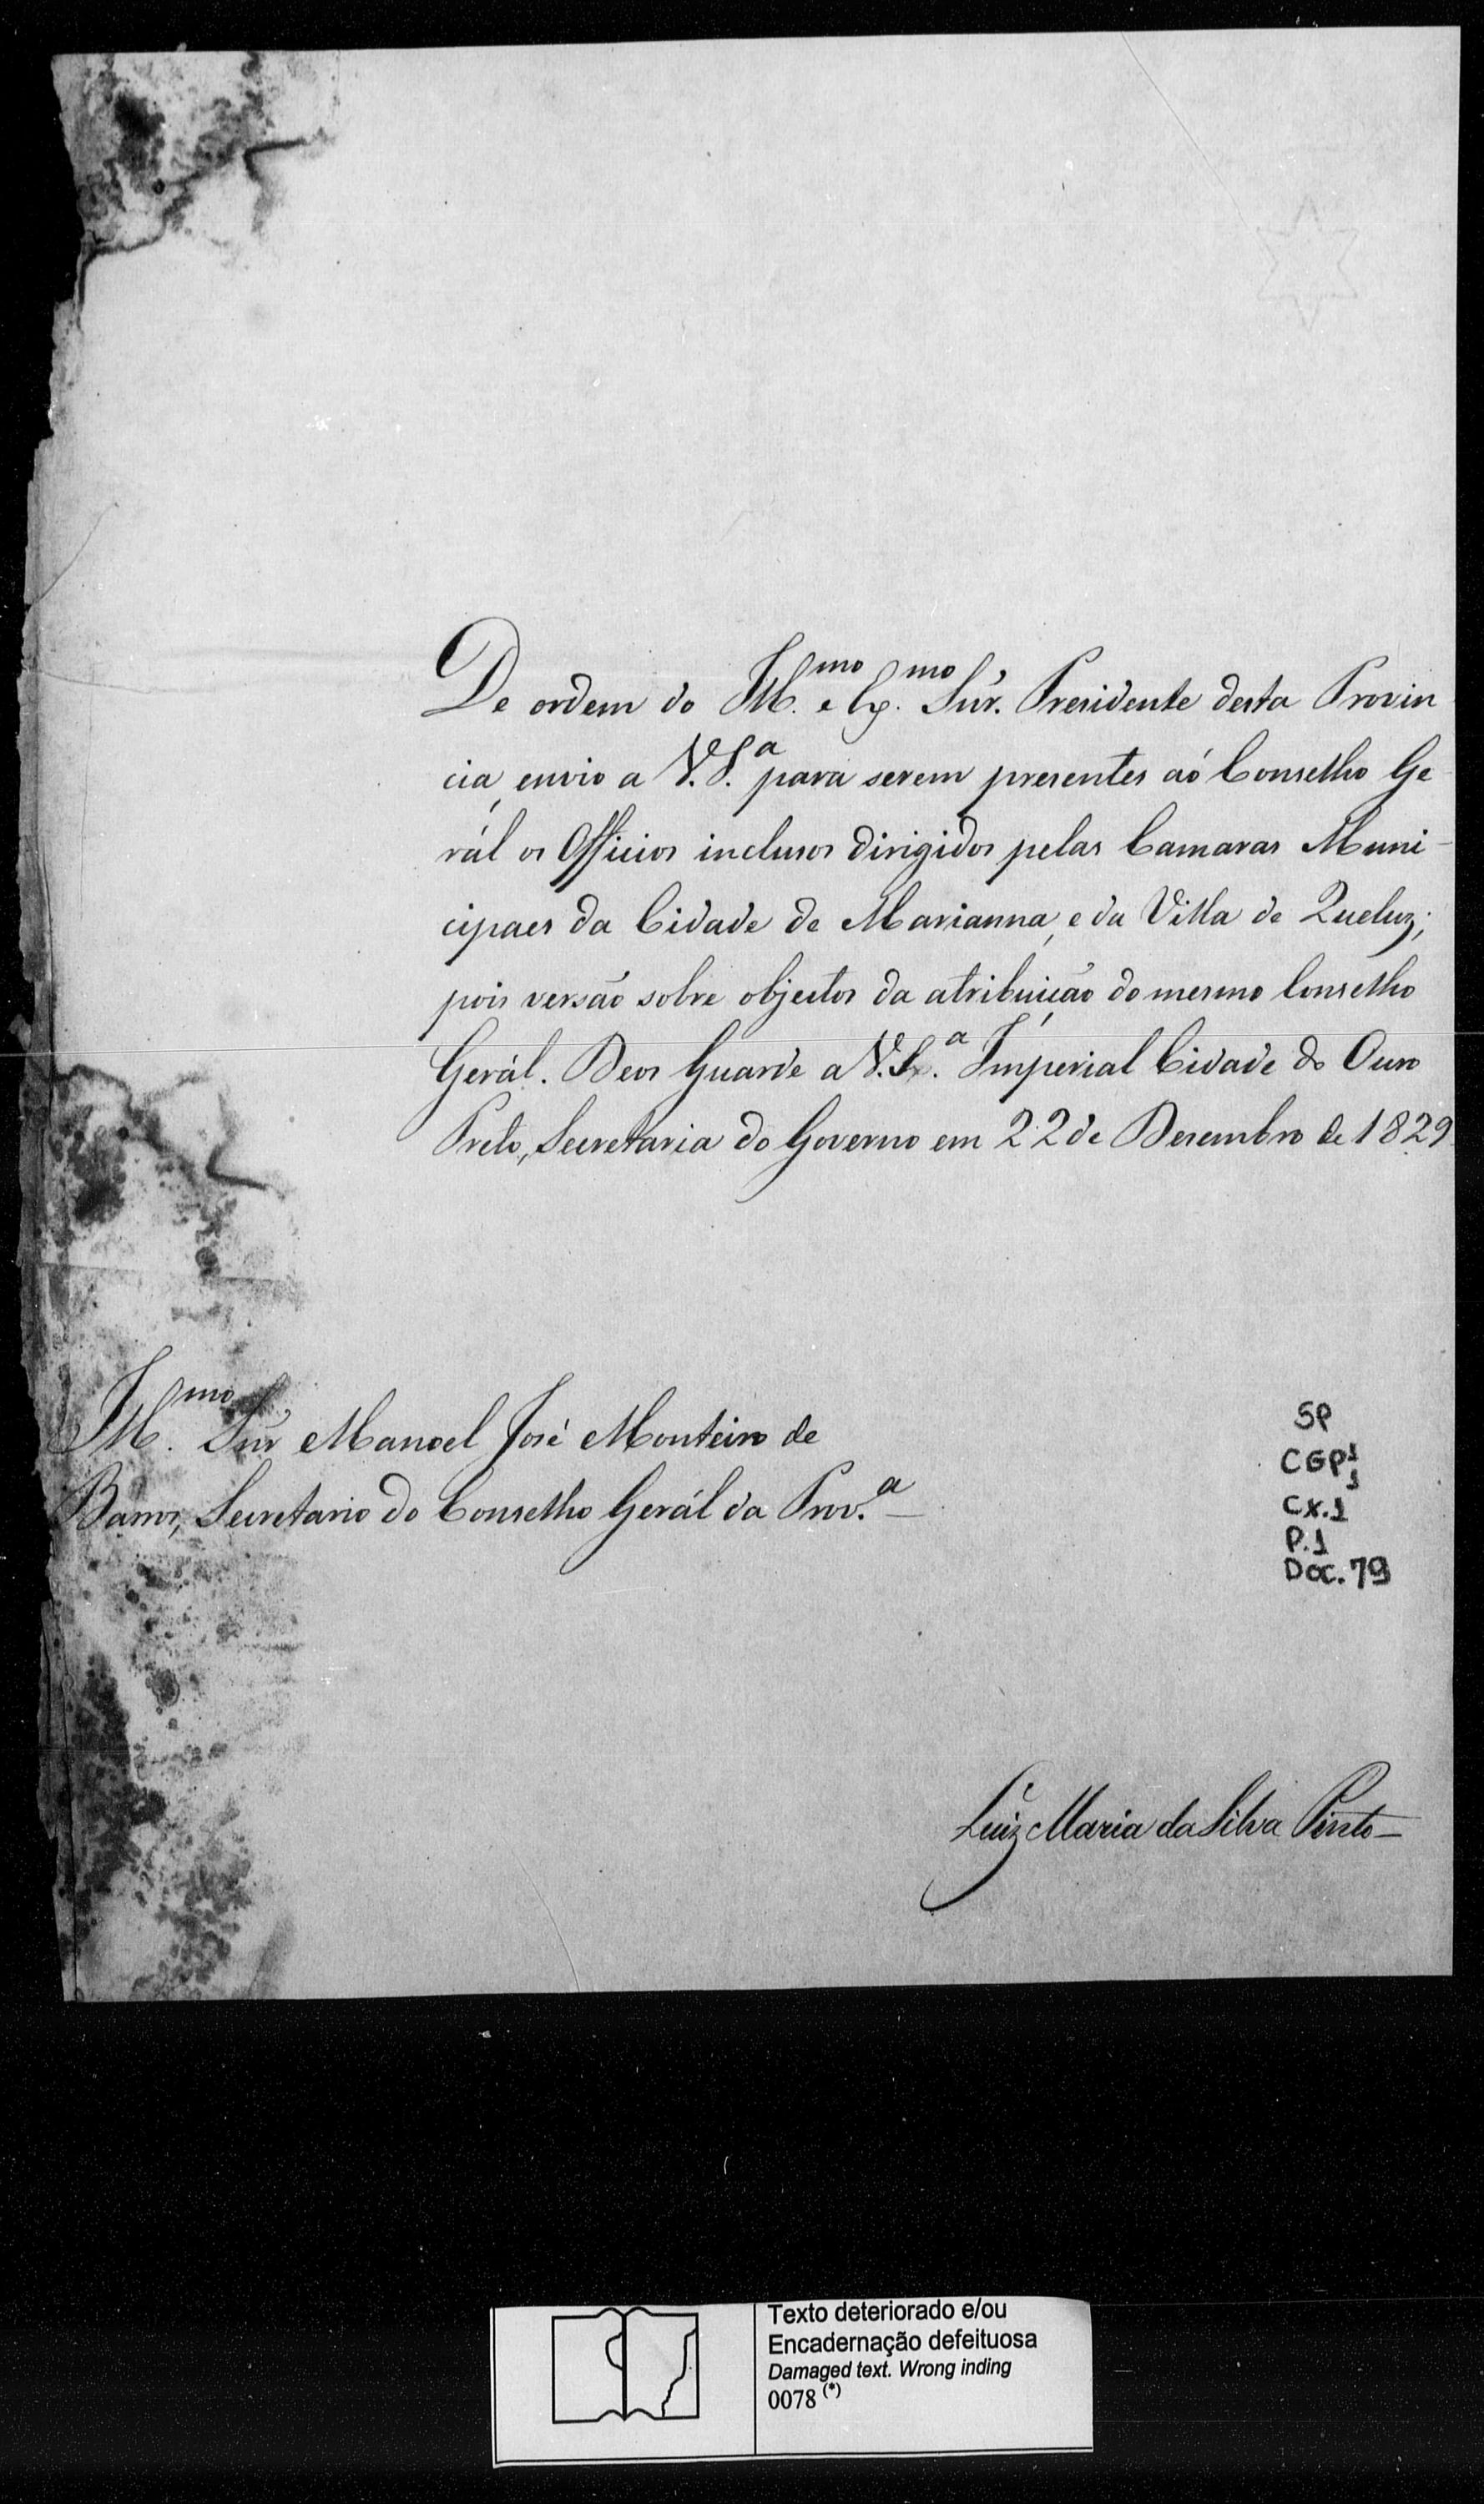 De ordem do Ill.mo e Ex.mo Snr. Presidente desta Provin
cia, envio a V. S.a para serem presentes aó Conselho Ge
rál os Officios inclusos dirigidos pelas Camaras Muni-
cipaes da Cidade de Marianna, e da Villa de Queluz;
pois versão sobre objectos da atribuição do mesmo Conselho
Gerál. Deos Guarde a V. S.a Imperial Cidade do Ouro
Preto, Secretaria do Governo em 22 de Desembro de 1829
Ill.mo Snr Manoel José Monteiro de
Barros, Secretario do Conselho Gerál da Prov.a —
SP
CGP1
1
CX.1
P.1
Doc. 79
Luiz Maria da Silva Pinto —
Texto deteriorado e/ou
Encadernação defeituosa
Damaged text. Wrong inding
0078 (*)